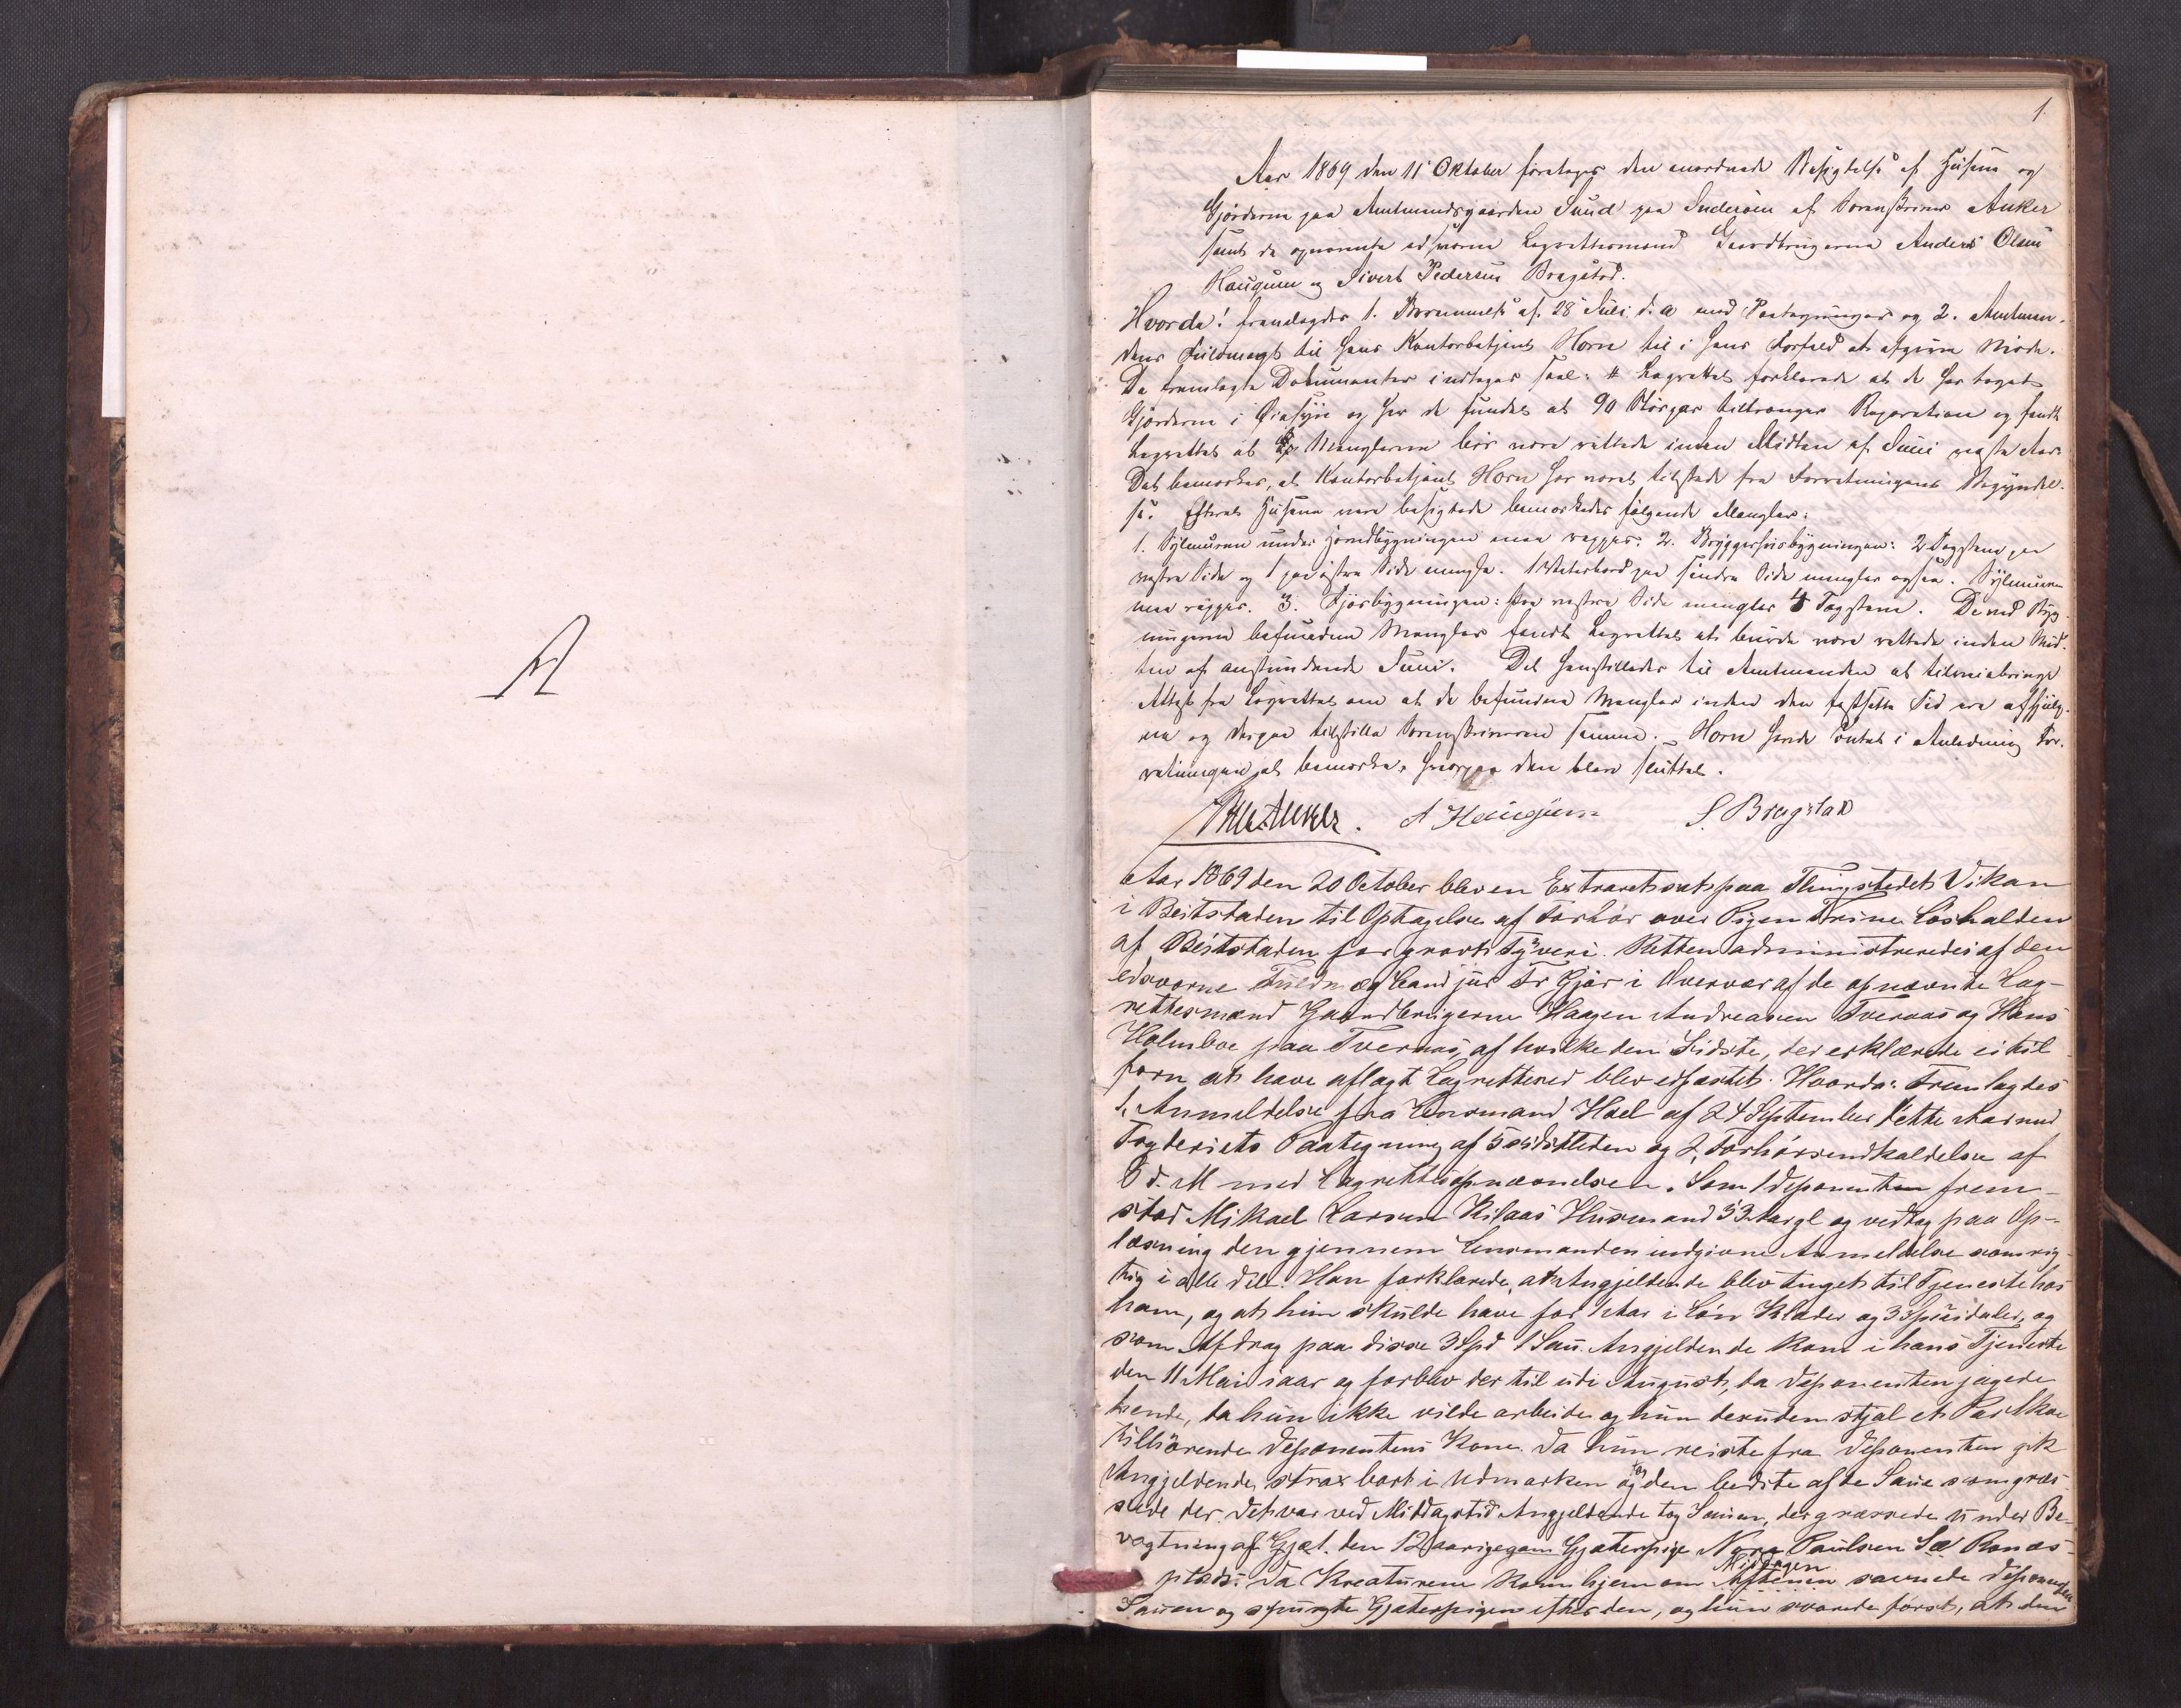 A
1.
Aar 1869 den 11' Oktober foretages den anordnede Besigtelse af Husene og
Gjærderne paa Amtmandsgaarden Sund paa Inderøen af Sorenskriver Anker
samt de opnævnte edsvorne Lagrettemænd Gaardbrugerne Anders Olsen
Haugum og Sivert Pedersen Bragstad.
Hvorda! fremlagdes 1. Berammelse af 28' Juli d. a med Paategninger og 2. Amtman-
dens Fuldmagt til hans Kontorbetjent Horn til i hans Forfald at afgive Møde.
De fremlagte Dokumenter indtages saal: # Lagrettet forklarede at de har taget
Gjærderne i Øiesyn og har de fundet at 90 Størger tiltrænger Reparation og fandt
Lagrettet at Manglerne bør være rettede inden Midten af Juni næste Aar
Det bemærkes, at Kontorbetjent Horn har været tilstede fra Forretningens Begyndel-
se. Efterat Husene vare besigtede bemærkedes følgende Mangler:
1. Sylmuren under Hovedbygningen maa rappes: 2. Bryggerhusbygningen: 2 Tagstene paa
vestre Side og 1 paa østre Side mangle. 1 Vaterbord paa søndre Side mangler ogsaa. Sylmuren
maa rappes. 3. Fjøsbygningen: Paa vestre Side mangler 4 Tagstene. De ved Byg-
ningerne befundne Mangler fandt Lagrettet at burde være rettede inden Mid-
ten af anstundende Juni. Det henstilledes til Amtmanden at tilveiebringe
Attest fra Lagrettet om at de befundne Mangler inden den fastsatte Tid ere afhjulp-
ne og derpaa tilstille Sorenskriveren samme. _ Horn havde Intet i Anledning For-
retningen at bemærke, hvorpaa den blev sluttet.
Anker. A Haugum S. Bragstad
Aar 1869 den 20 October blev en Extraret sat paa Thingstedet Vikan
i Beitstaden til Optagelse af Forhør over Pigen Trine Løshalden
af Beitstaden for grovt Tyveri. Retten administreredes af den
edsvorne Fuldmægt Cand jur Fr Gjør i Overvær af de opnævnte Lag-
rettesmænd Gaardbrugerne Haagen Andreasen Tvernas og Hans
Holmboe paa Tvernas, af hvilke den Sidste, der erklærede ei til-
forn at have aflagt Lagretteed blev edfæstet. Hvorda: Fremlagdes
1, Anmeldelse fra Lensmand Hoel af 24 September dette Aar med
Fogderiets Paategning af 5 sidstleden og 2, Forhørsindkaldelse af
8 d. M med Lagrettesopnævnelsen. Som 1 Deponenten frem-
stod Mikael Larsen Kilaas Husmand 53 Aar gl og vedtog paa Op-
læsning den gjennem Lensmanden indgivne Anmeldelse som rig-
tig i alle Dele. Han forklarede, at Angjeldende blev tinget til Tjeneste hos
ham, og at hun skulde have for 1 Aar i Løn Klæder og 3 Speciedaler, og
som Afdrag paa disse 3 Spd 1 Sau. Angjeldende kom i hans Tjeneste
den 11 Mai iaar og forblev der til udi August, da Deponenten jagede
hende, da hun ikke vilde arbeide og hun desuden stjal et Par Skoe
tilhørende Deponentens Kone. Da hun reiste fra Deponenten gik
Angjeldende strax bort i Udmarken og tog den bedste af de Saue som græs-
sede der. Det var ved Middagstid Angjeldende tog Sauen, der græssede under Be-
vogtning af Gjæt. den 12 aarigegam Gjæterpige Nora Paulsen Sæ Ronæs-
plads: Da Kreaturene kom hjem om Aftenen Middagen savnede Deponenten
Sauen og spurgte Gjæterpigen efter den, og hun svarede først, at den